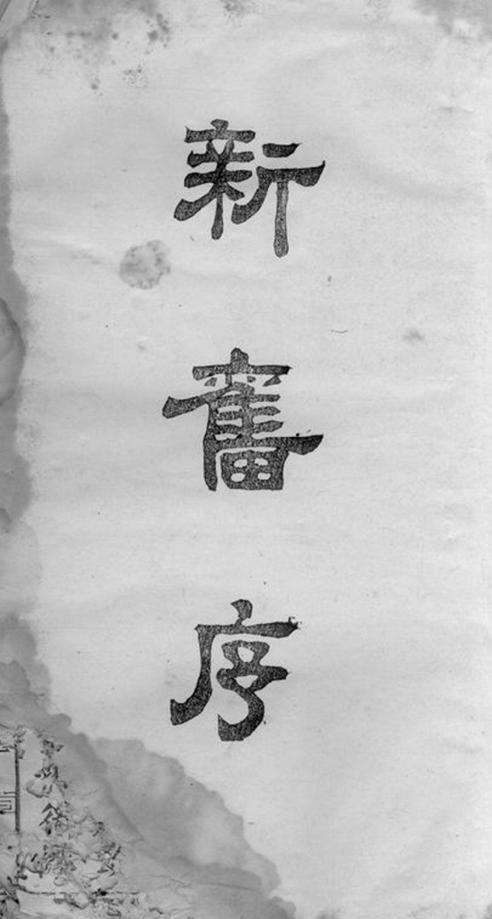 新舊序